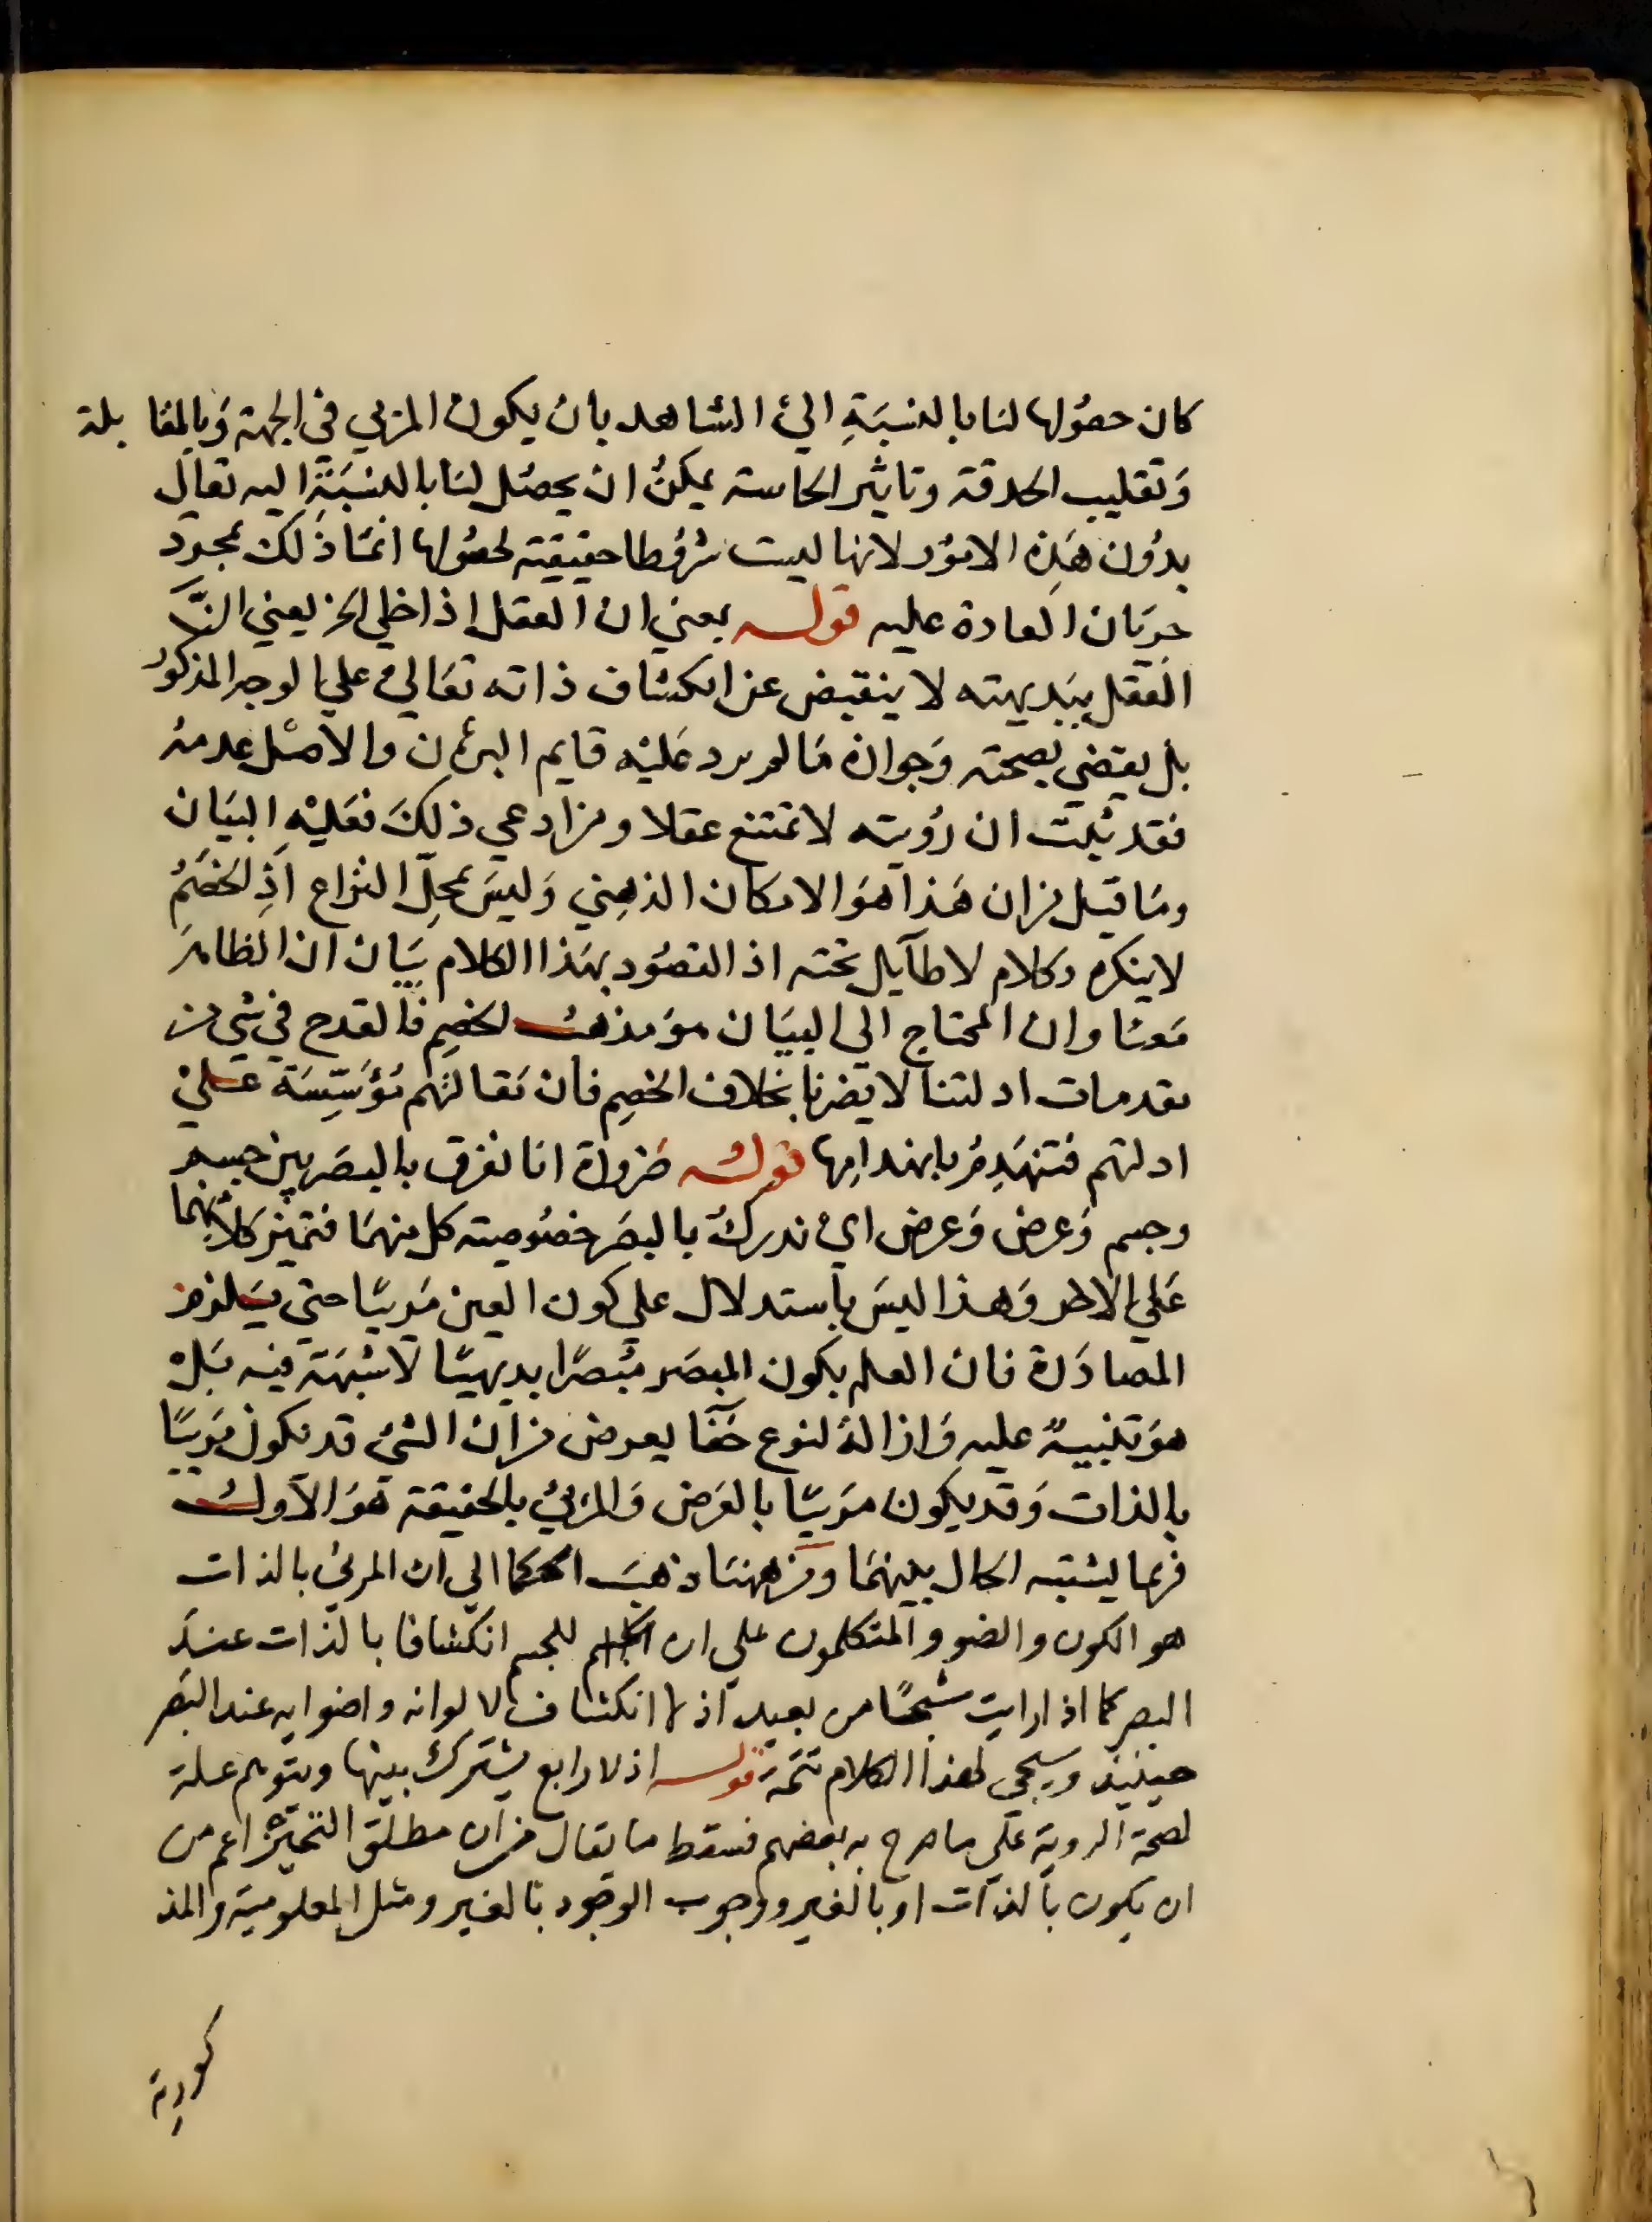 كان حصولها لنا بالنسبة الى الشاهد بان يكون المرئي في الجهة وبالمقابلة
وتقليب الحدقة وتاثير الحاسة يمكن ان يحصل لنا بالنسبة اليه تعالى
بدون هذه الامور لانها ليست شروطا حقيقية لحصولها انما ذلك بمجرد
جريان العادة عليه قوله يعني ان العقل اذا خلي الخ يعني ان
العقل ببديهته لا ينقبض عن انكشاف ذاته تعالى على الوجه المذكور
بل يقضي بصحته وجوازه ما لم يرد عليه قايم البرهان والاصل عدمه
فقد ثبت ان رؤيته لا تمتنع عقلا ومن ادعى ذلك فعليه البيان
وما قيل من ان هذا هو الامكان الذهني وليس بمحل النزاع اذ الخصم
لا ينكره وكلام لا طآيل تحته اذ المقصود بهذا الكلام بيان ان الظاهر
معنا وان المحتاج الى البيان هو مذهب الخصم فالقدح في شي من
مقدمات ادلتنا لا يضرنا بخلاف الخصم فان مقالتهم مؤسسة على
ادلتهم فتنهدم بانهدامها قوله ضرورة انا نفرق بالبصر بين جسم
وجسم وعرض وعرض اي ندرك بالبصر خصوصية كل منهما فتميز كلا منهما
على الاخر وهذا ليس باستدلال على كون العين مرييا حتى يستلزم
المصادرة فان العلم بكون المبصر مبصرا بديهيا لا شبهة فيه بل
هو تنبيه عليه وازالة لنوع خفا يعرض من ان الشي قد يكون مرييا
بالذات وقد يكون مرييا بالعرض والمرئي بالحقيقة هو الاول
فربما يشتبه الحال بينهما ومن ههنا ذهب الحكما الى ان المرئي بالذات
هو الكون والضو والمتكلمون على ان للجسم انكشافا بالذات عند
البصر كما اذا رايت شبحا من بعيد اذ لا انكشاف لالوانه واضوايه عند البصر
حينيذ وسيجى لهذا الكلام تتمة قوله اذ لا رابع يشترك بينها ويتوهم علة
لصحة الروية على ما صرح به بعضهم فسقط ما يقال من ان مطلق التحيز اعم من
ان يكون بالذات او بالغير ووجوب الوجود بالغير ومثل المعلومية والمذ
كورية